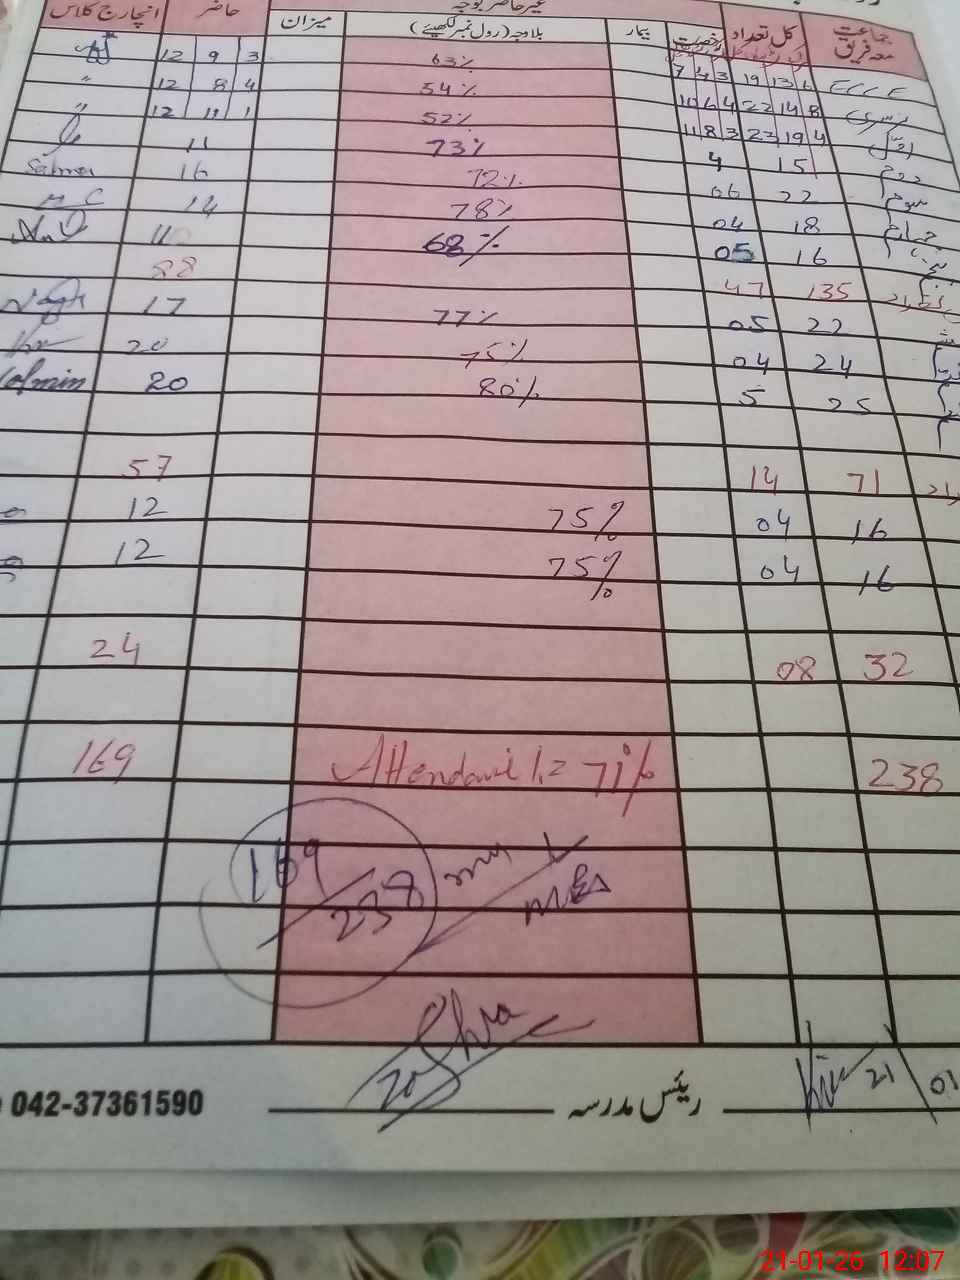 غیر حاضر بوجہ
جماعت معہ فریق کل تعداد رخصت بیمار بلاوجہ (رول نمبر لکھیئے) میزان حاضر انچارج کلاس
ECCE 6 13 19 3 4 7 63% 3 9 12
نرسری 8 14 22 4 6 10 54% 4 8 12 "
اوّل 4 19 23 3 8 11 52% 1 11 12 "
دوم 15 4 73% 11
سوم 22 06 72% 16 Salma
چہارم 18 04 78% 14 M.C
پنجم 16 05 68% 11
135 47 88
22 05 77% 17
24 04 75% 20
25 5 80% 20
71 14 57
16 04 75% 12
16 04 75% 12
32 08 24
238 Attendance %= 71% 169
169/238
رئیس مدرسہ
21/01
042-37361590
21-01-26 12:07